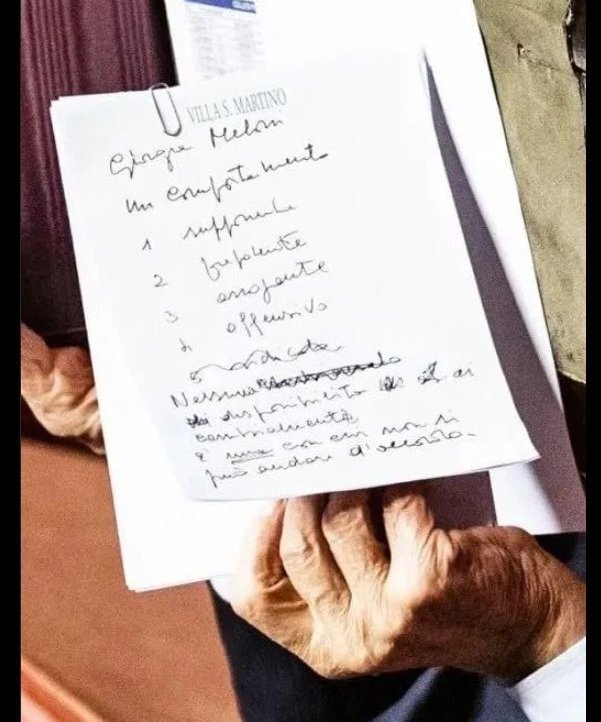 VILLA S. MARTINO
Giorgia Meloni
un comportamento
1 supponente
2 prepotente
3 arrogante
4 offensivo
5 ridicolo
Nessuna
disponibilità ai
cambiamenti
è una con cui non si
può andare d'accordo.